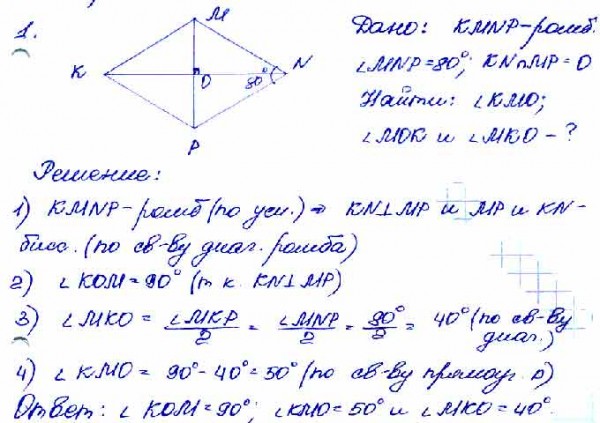 1.
M
K
N
O
80°
P
Дано: KMNP-ромб.
∠MNP=80°; KN∩MP=O
Найти: ∠KMO;
∠MOK и ∠MKO - ?
Решение:
1) KMNP-ромб (по усл.) ⇒ KN⊥MP и MP и KN-
бисс. (по св-ву диаг. ромба)
2) ∠KOM=90° (т к. KN⊥MP)
3) ∠MKO = ∠MKP/2 = ∠MNP/2 = 80°/2 = 40° (по св-ву
диаг.)
4) ∠KMO = 90°-40°=50° (по св-ву прямоуг. Δ)
Ответ: ∠KOM=90°; ∠KMO=50° и ∠MKO=40°.